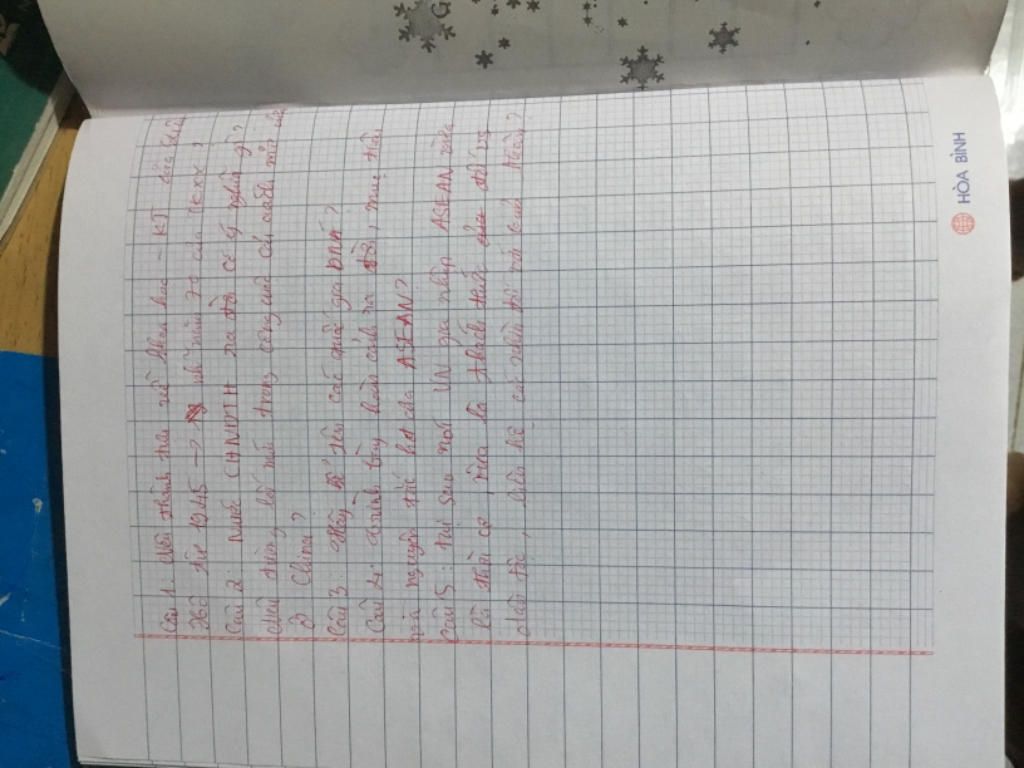 Câu 1: Nêu thành tựu về khoa học - KT của Liên
Xô từ 1945 -> những năm 70 của TKXX?
Câu 2: Nước CHNDTH ra đời có ý nghĩa gì?
Nêu đường lối mới trong công cuộc cải cách mở cửa
ở China?
Câu 3: Hãy kể tên các quốc gia ĐNÁ?
Câu 4: trình bày hoàn cảnh ra đời, mục tiêu
và nguyên tắc hđ của ASEAN?
Câu 5: tại sao nói VN gia nhập ASEAN vừa
là thời cơ, vừa là thách thức của đối vs
dân tộc, liên hệ
HÒA BÌNH
G